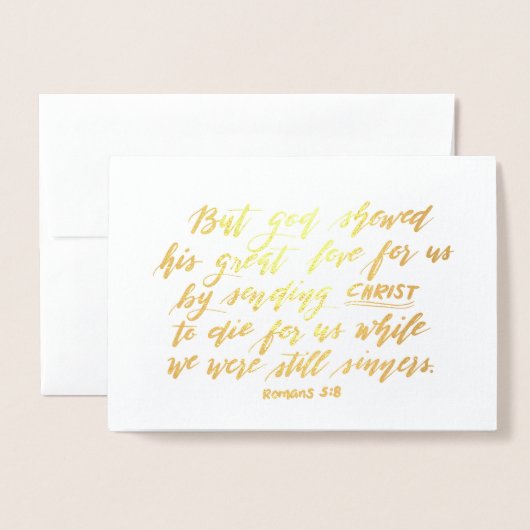 But god showed
his great love for us
by sending CHRIST
to die for us while
we were still sinners.
Romans 5:8